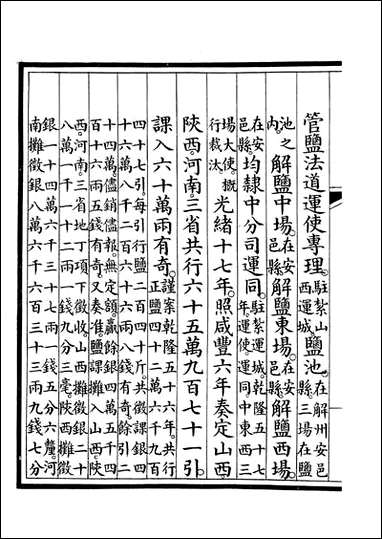 管鹽法道運使專理。駐紮山西運城。鹽池。在解州安邑縣三場在鹽
池之內。解鹽中場。在安邑縣。解鹽東場。在安邑縣。解鹽西場。
在安邑縣。均隸中分司運同。駐紮運城。乾隆五十七年。運使。運同。中東西三
場大使。概行裁汰。光緒十七年。照咸豐六年奏定山西
陝西。河南。三省共行六十五萬九百七十一引
課入六十萬兩有奇。謹案乾隆五十六年。共行正鹽四十二萬六千九百
四十七引。每引行鹽二百四十斤。共徵課銀四
十六萬八千二百六十六兩八錢有奇。餘引二
十四萬。儘銷儘報。無定額。贏餘銀四萬五千四
百十六兩五錢有奇。又奏准。鹽課攤入山西。陝
西。河南。三省地丁項下徵收。山西攤徵銀二十
八萬一千一百十二兩一錢九分三毫。陝西攤徵
銀一十四萬六千三十七兩一錢五分六釐。河
南攤徵銀八萬六千六百三十三兩九錢七分